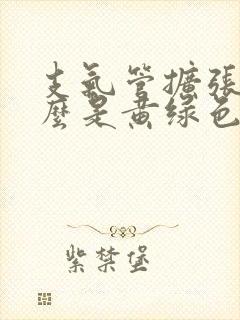 支氣管擴張
麼是黃绿色
紫禁堡